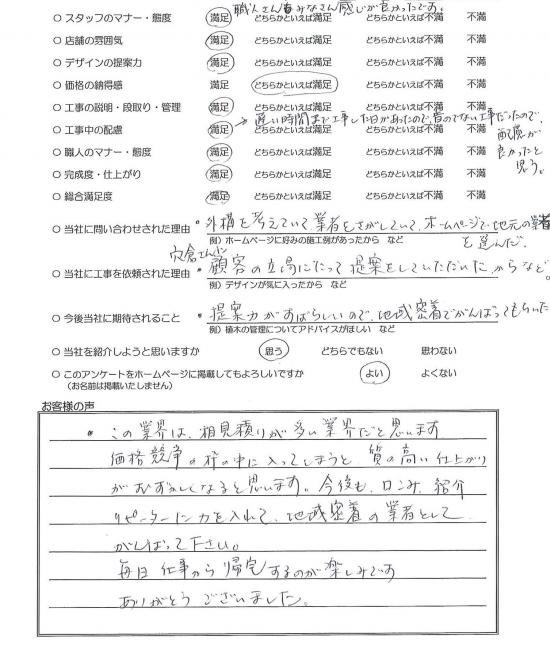 職人さん含みなさん感じが良かったです。
○ スタッフのマナー・態度 満足 どちらかといえば満足 どちらかといえば不満 不満
○ 店舗の雰囲気 満足 どちらかといえば満足 どちらかといえば不満 不満
○ デザインの提案力 満足 どちらかといえば満足 どちらかといえば不満 不満
○ 価格の納得感 満足 どちらかといえば満足 どちらかといえば不満 不満
○ 工事の説明・段取り・管理 満足 どちらかといえば満足 どちらかといえば不満 不満
→ 遅い時間まで工事した日があったので、音のでない工事だったので、
配慮が
良かったと
思う。
○ 工事中の配慮 満足 どちらかといえば満足 どちらかといえば不満 不満
○ 職人のマナー・態度 満足 どちらかといえば満足 どちらかといえば不満
○ 完成度・仕上がり 満足 どちらかといえば満足 どちらかといえば不満 不満
○ 総合満足度 満足 どちらかといえば満足 どちらかといえば不満 不満
○ 当社に問い合わせされた理由 • 外構を考えていて業者をさがしていて、ホームページで地元の業者
を選んだ。
例）ホームページに好みの施工例があったから など
○ 当社に工事を依頼された理由 • 顧客の立場にたって提案をしていただいたからなど。
例）デザインが気に入ったから など
○ 今後当社に期待されること • 提案力がすばらしいので、地域密着でがんばってもらいた
例）植木の管理についてアドバイスがほしい など
○ 当社を紹介しようと思いますか 思う どちらでもない 思わない
○ このアンケートをホームページに掲載してもよろしいですか よい よくない
（お名前は掲載いたしません）
お客様の声
• この業界は、相見積りが多い業界だと思います
価格競争の枠の中に入ってしまうと、質の高い仕上がり
がむずかしくなると思います。今後も、口コミ、紹介
リピーターに力を入れて、地域密着の業者として
がんばって下さい。
毎日 仕事から帰宅するのが楽しみです
ありがとうございました。